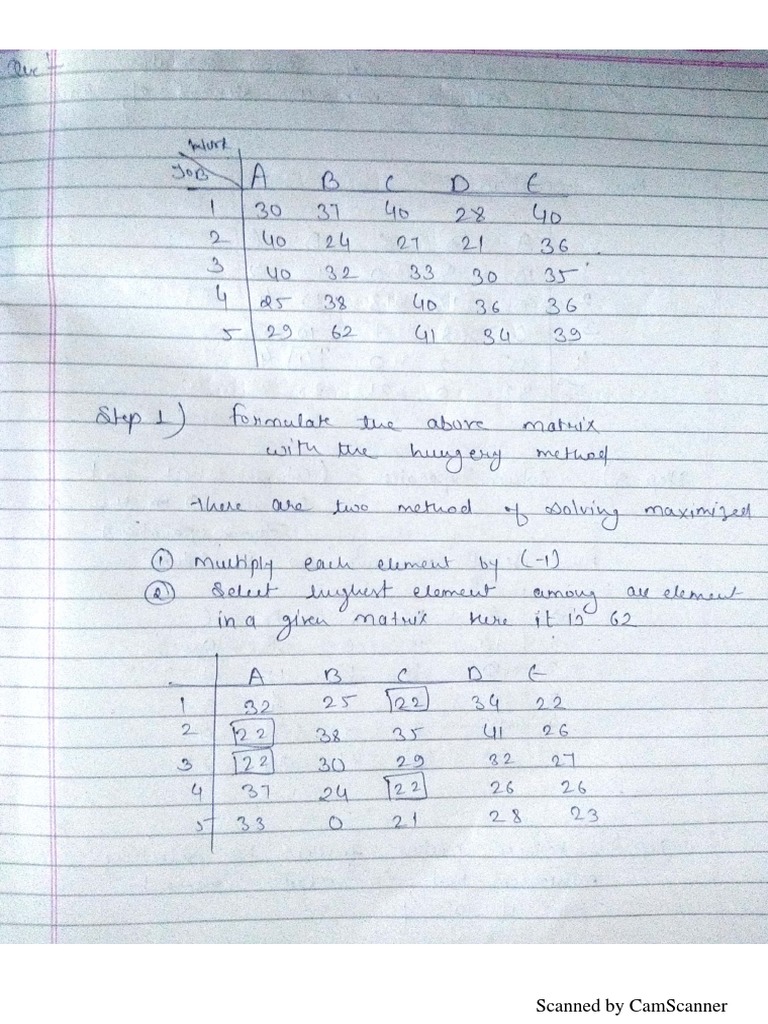 Que :-
Work
JOB A B C D E
1 30 37 40 28 40
2 40 24 27 21 36
3 40 32 33 30 35
4 25 38 40 36 36
5 29 62 41 34 39
Step 1) formulate the above matrix
with the hungery method
there are two method of solving maximized
① Multiply each element by (-1)
② Select highest element among all element
in a given matrix here it is 62
A B C D E
1 32 25 22 34 22
2 22 38 35 41 26
3 22 30 29 32 27
4 37 24 22 26 26
5 33 0 21 28 23
Scanned by CamScanner